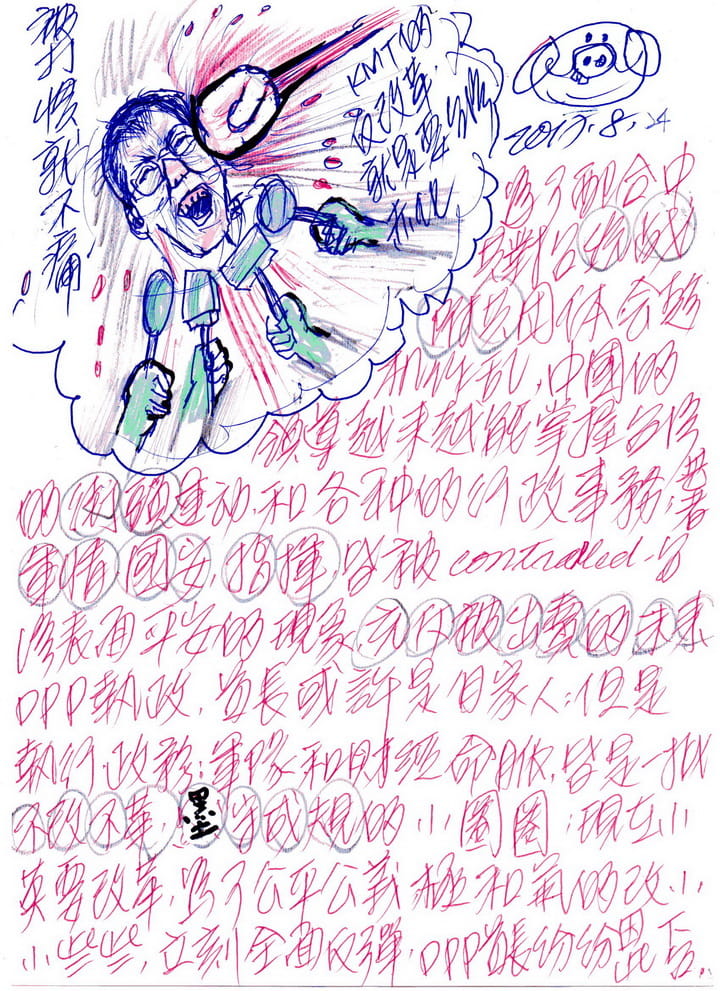 被打慣就不痛
KMT的
反改革,
就是要台灣
2017.8.24
為了配合中
國對台
的共同体会趋
中國的
領導越来越能掌握台灣
的 運动和各种的行政事務;
軍情國安,指揮,皆被controlled台
灣表面平安的現象, 被出賣的未来
DPP執政,首長或許是自家人;但是
執行政務;軍隊和財經命脈,皆是一批
不改不革,墨守成規的小圈圈;現在小
英要改革,為了公平公義極和氣的改小
小些些,立刻全面反彈,DPP首長紛紛